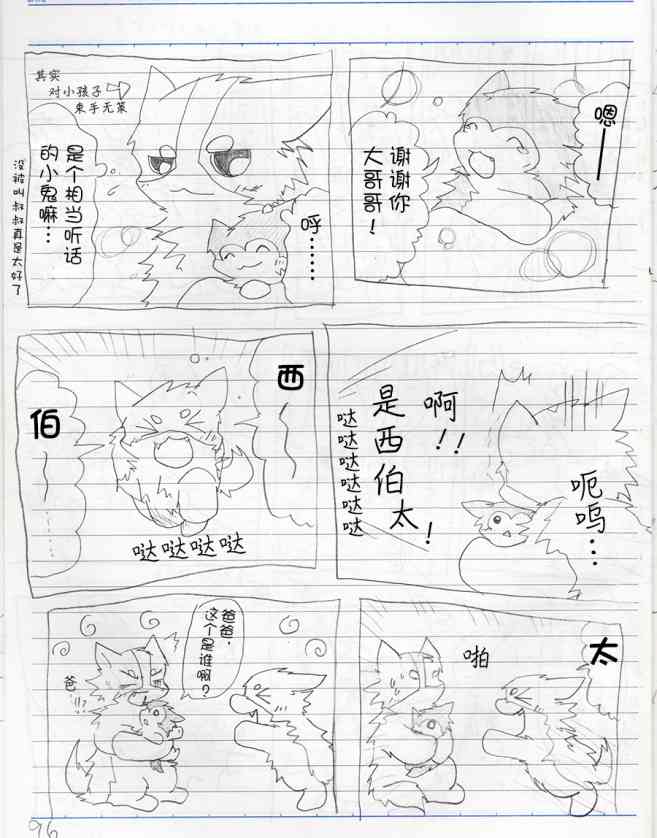 嗯——
谢谢你
大哥哥！
其实
对小孩子
束手无策
呼……
是个相当听话
的小鬼嘛…
没被叫叔叔真是太好了
啊！！
是西伯太！
哒哒哒哒哒哒
呃呜…
西～
伯～……
哒哒哒哒
太
啪
爸爸，
这个是谁啊？
爸…!!?
96